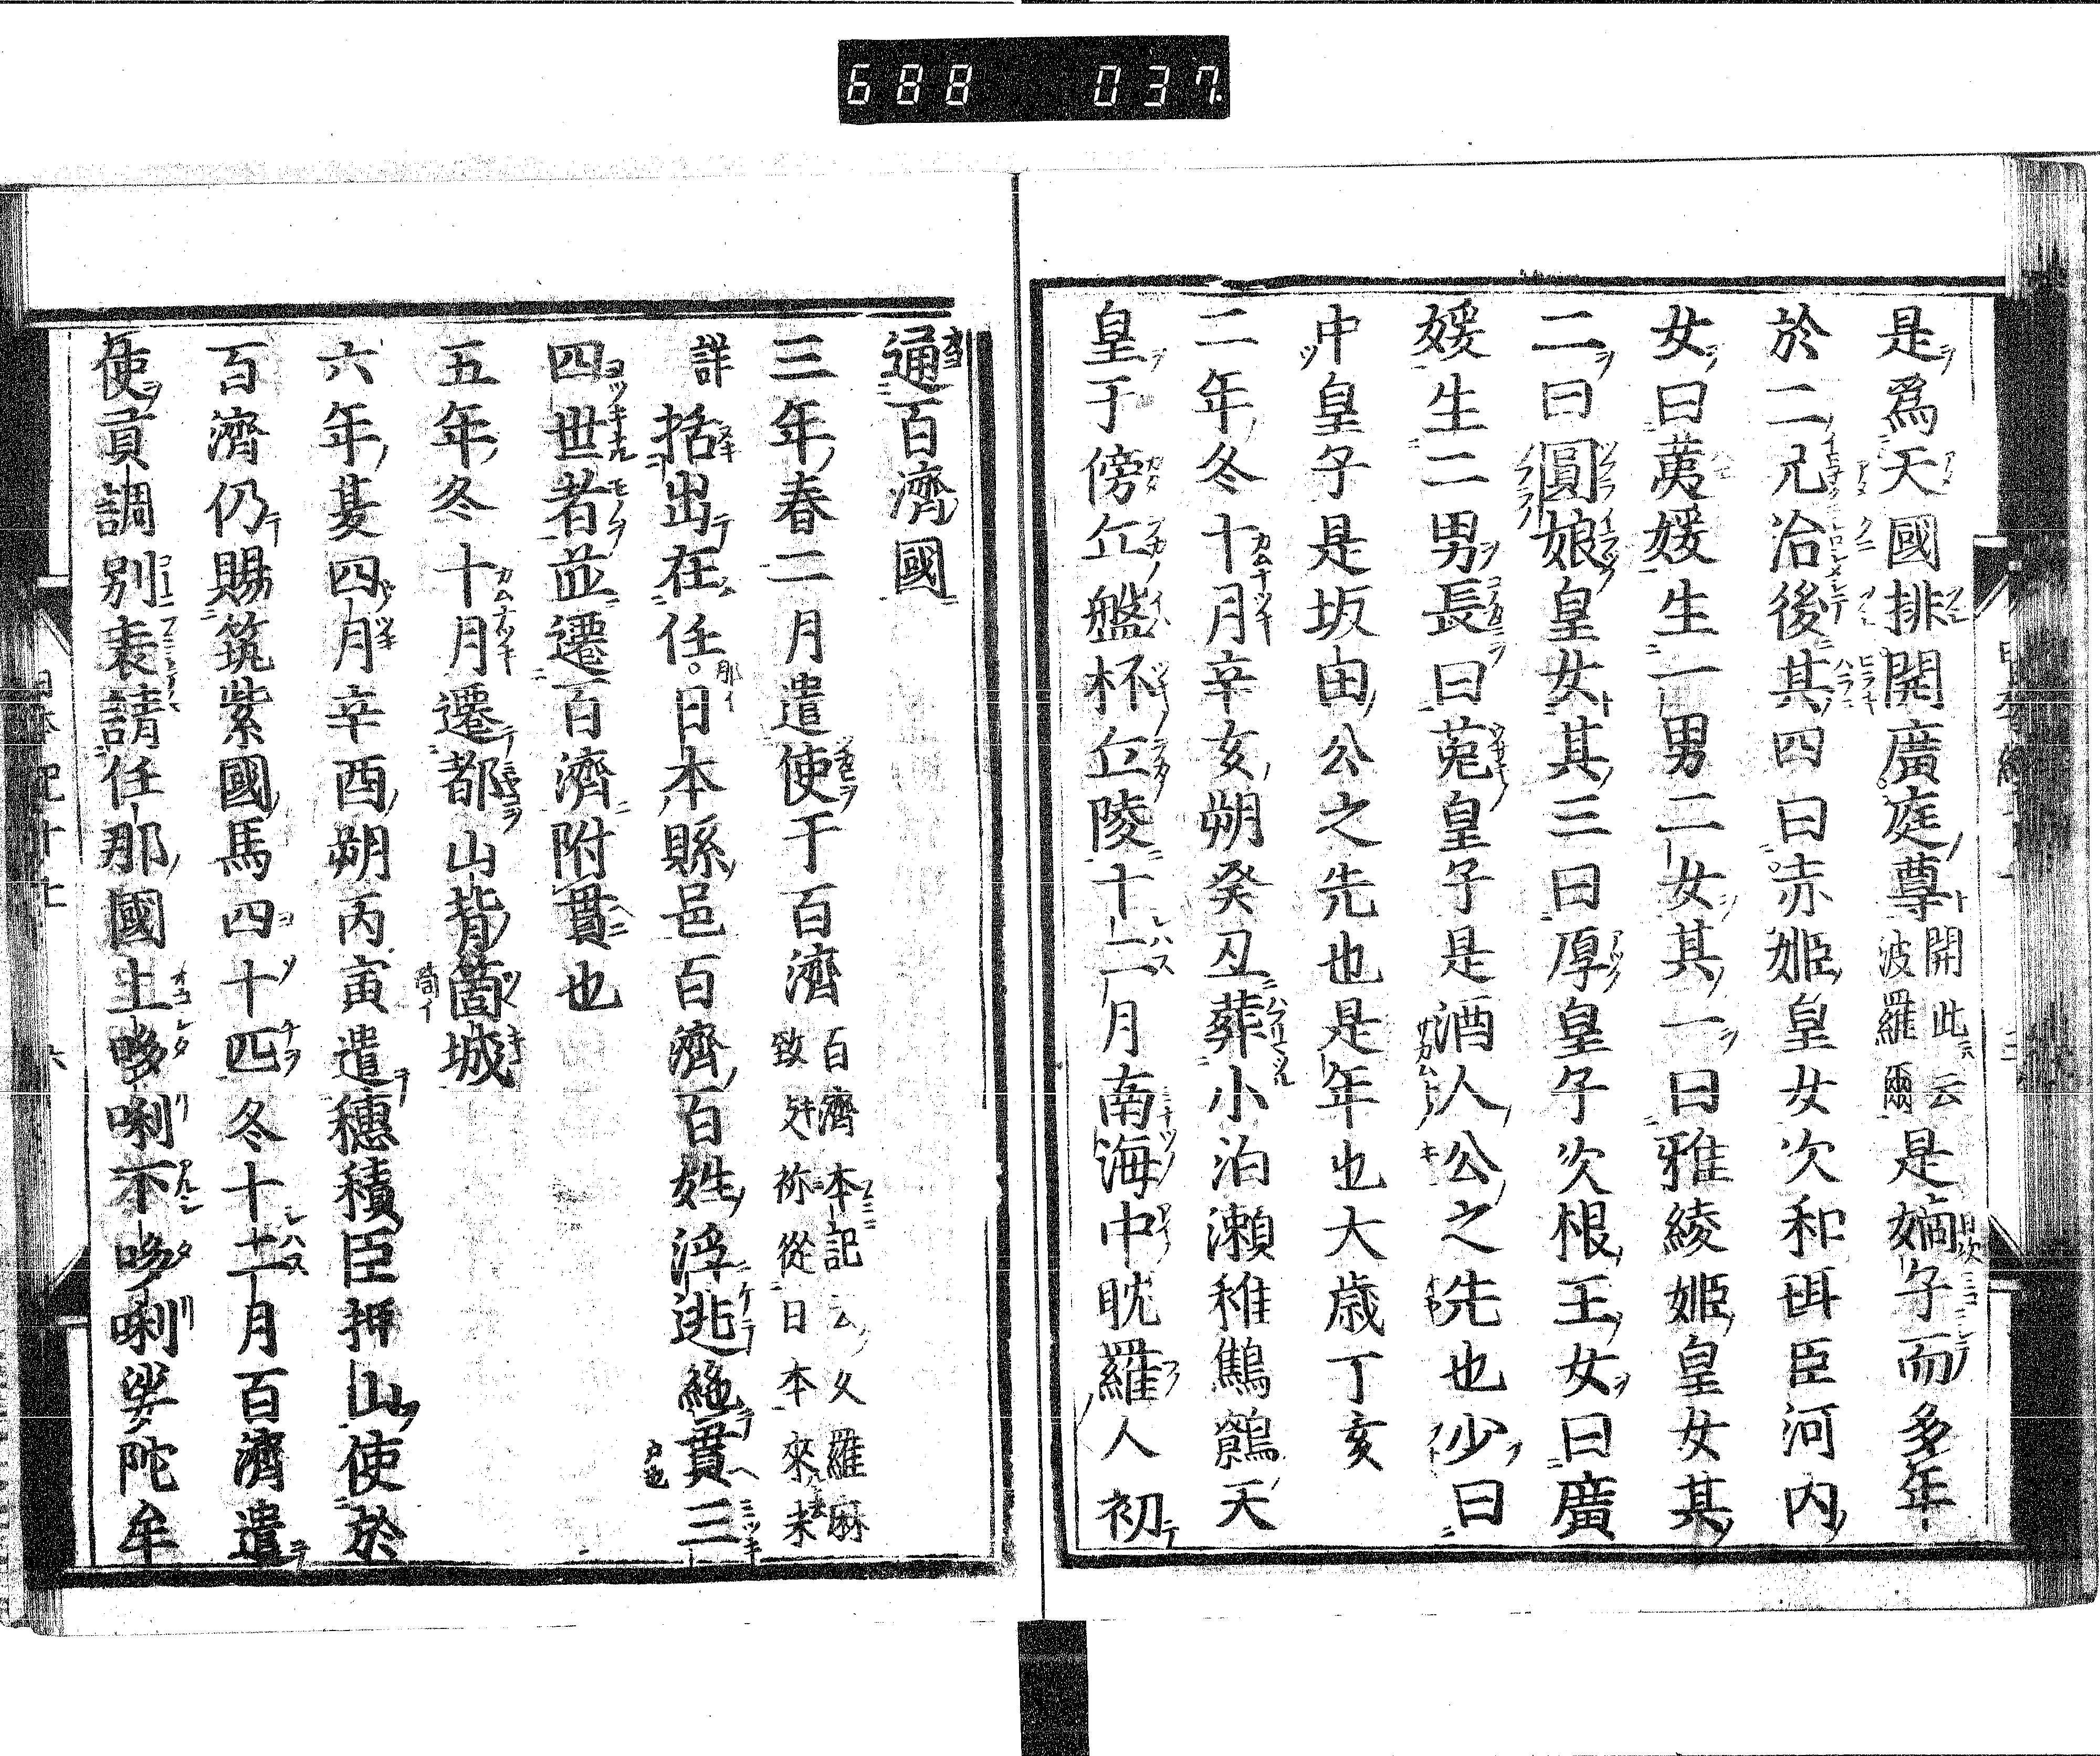 688 037
是爲天國排開廣庭尊開此云波羅爾是嫡子而多年
於二兄治後其四曰赤姬皇女次和珥臣河內
女曰荑媛生一男二女其一曰雅綾姬皇女其
二曰圓娘皇女其三曰厚皇子次根王女曰廣
媛生二男長曰菟皇子是酒人公之先也少曰
中皇子是坂田公之先也是年也大歲丁亥
二年冬十月辛亥朔癸丑葬小泊瀨稚鷦鷯天
皇于傍丘盤杯丘陵十二月南海中耽羅人初
通百濟國
三年春二月遣使于百濟百濟本記云久羅麻致支祢從日本來未
詳括出在任日本縣邑百濟百姓浮逃絕貫三
四世者並遷百濟附貫也
五年冬十月遷都山背箇城
六年夏四月辛酉朔丙寅遣穗積臣押山使於
百濟仍賜筑紫國馬四十匹冬十二月百濟遣
使貢調別表請任那國上哆唎下哆唎娑陀牟